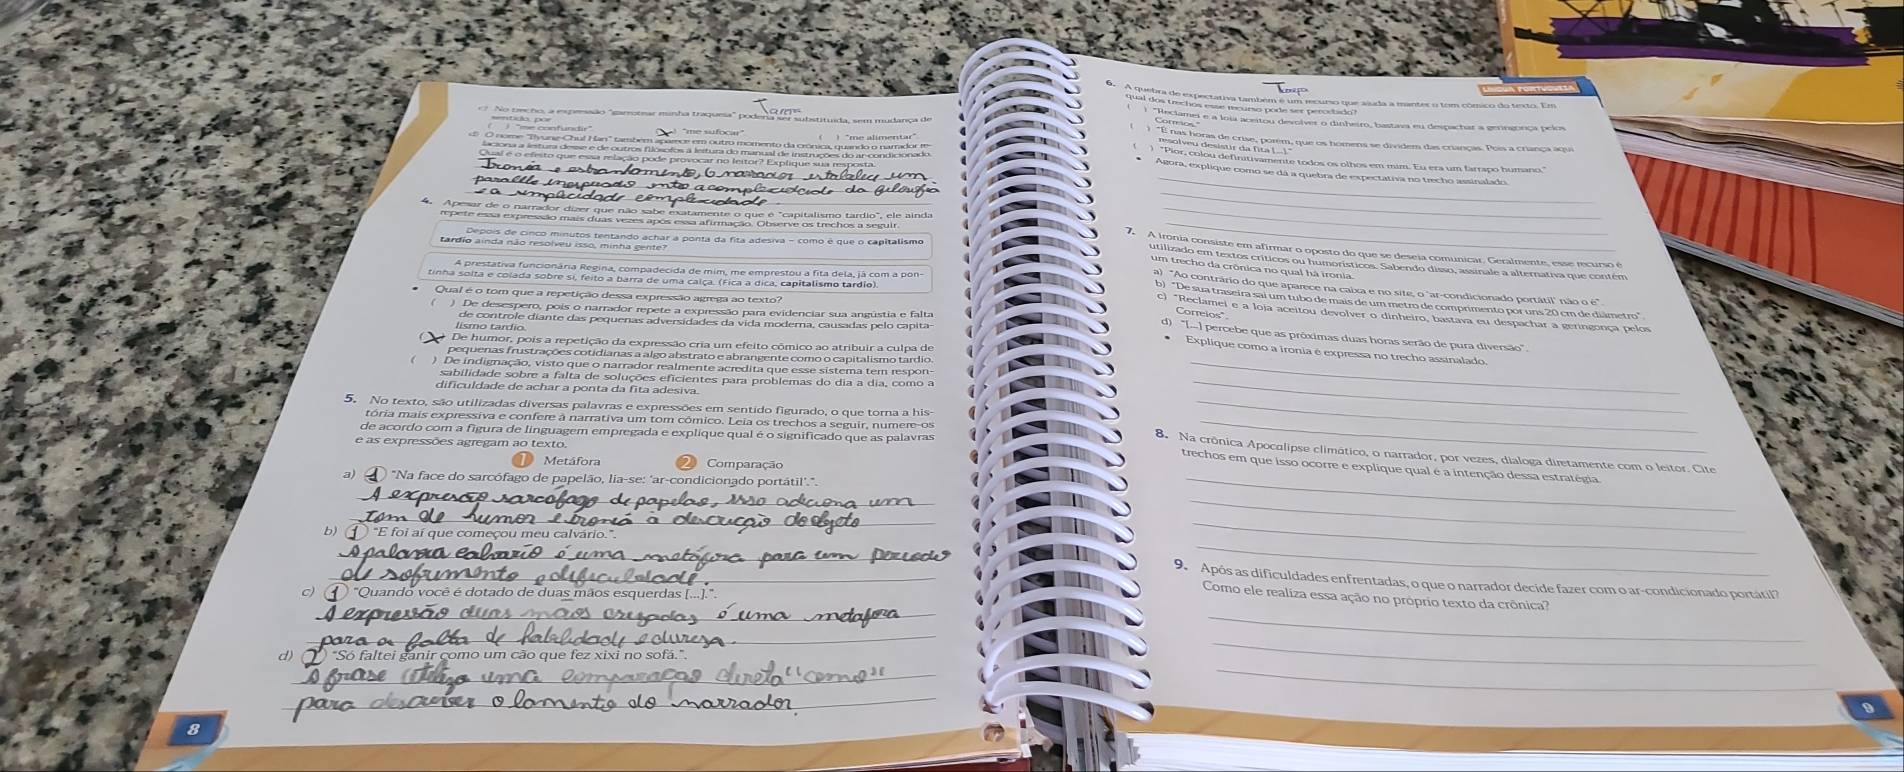 Tarefa
c) No trecho, a expressão "garrotear minha traqueia" poderia ser substituída, sem mudança de
sentido, por
( ) "me confundir". (X) "me sufocar". ( ) "me alimentar".
d) O nome "Byung-Chul Han" também aparece em outro momento da crônica, quando o narrador re-
laciona a leitura desse e de outros filósofos à leitura do manual de instruções do ar-condicionado.
Qual é o efeito que essa relação pode provocar no leitor? Explique sua resposta.
Ironia e estranhamento, O narrador estabelece um
paralelo inesperado entre a complexidade da filosofia
e a simplicidade
4. Apesar de o narrador dizer que não sabe exatamente o que é "capitalismo tardio", ele ainda
repete essa expressão mais duas vezes após essa afirmação. Observe os trechos a seguir.
Depois de cinco minutos tentando achar a ponta da fita adesiva – como é que o capitalismo
tardio ainda não resolveu isso, minha gente?
A prestativa funcionária Regina, compadecida de mim, me emprestou a fita dela, já com a pon-
tinha solta e colada sobre si, feito a barra de uma calça. (Fica a dica, capitalismo tardio).
• Qual é o tom que a repetição dessa expressão agrega ao texto?
( ) De desespero, pois o narrador repete a expressão para evidenciar sua angústia e falta
de controle diante das pequenas adversidades da vida moderna, causadas pelo capita-
lismo tardio.
(X) De humor, pois a repetição da expressão cria um efeito cômico ao atribuir a culpa de
pequenas frustrações cotidianas a algo abstrato e abrangente como o capitalismo tardio.
( ) De indignação, visto que o narrador realmente acredita que esse sistema tem respon-
sabilidade sobre a falta de soluções eficientes para problemas do dia a dia, como a
dificuldade de achar a ponta da fita adesiva.
5. No texto, são utilizadas diversas palavras e expressões em sentido figurado, o que torna a his-
tória mais expressiva e confere à narrativa um tom cômico. Leia os trechos a seguir, numere-os
de acordo com a figura de linguagem empregada e explique qual é o significado que as palavras
e as expressões agregam ao texto.
1 Metáfora 2 Comparação
a) (1) "Na face do sarcófago de papelão, lia-se: 'ar-condicionado portátil'.".
A expresão sarcofago de papelao, isso adiciona um
tom de humor e ironia à descrição do objeto
b) (1) "E foi aí que começou meu calvário.".
A palavra calvario é uma metáfora para um periodo
de sofrimento e dificuldade.
c) (1) "Quando você é dotado de duas mãos esquerdas [...].".
A expressão duas maos esquedas é uma metafora
para a falta de habilidade e dureza.
d) (2) "Só faltei ganir como um cão que fez xixi no sofá.".
A frase utiliza uma comparação direta "como"
para descrever o lamento do narrador.
8
Tarefa
LÍNGUA PORTUGUESA
6. A quebra de expectativa também é um recurso que ajuda a manter o tom cômico do texto. Em
qual dos trechos esse recurso pode ser percebido?
( ) "Reclamei e a loja aceitou devolver o dinheiro, bastava eu despachar a geringonça pelos
Correios."
( ) "É nas horas de crise, porém, que os homens se dividem das crianças. Pois a criança aqui
resolveu desistir da fita [...]."
( ) "Pior, colou definitivamente todos os olhos em mim. Eu era um farrapo humano."
• Agora, explique como se dá a quebra de expectativa no trecho assinalado.
7. A ironia consiste em afirmar o oposto do que se deseja comunicar. Geralmente, esse recurso é
utilizado em textos críticos ou humorísticos. Sabendo disso, assinale a alternativa que contém
um trecho da crônica no qual há ironia.
a) "Ao contrário do que aparece na caixa e no site, o 'ar-condicionado portátil' não o é".
b) "De sua traseira sai um tubo de mais de um metro de comprimento por uns 20 cm de diâmetro".
c) "Reclamei e a loja aceitou devolver o dinheiro, bastava eu despachar a geringonça pelos
Correios".
d) "[...] percebe que as próximas duas horas serão de pura diversão".
• Explique como a ironia é expressa no trecho assinalado.
8. Na crônica Apocalipse climático, o narrador, por vezes, dialoga diretamente com o leitor. Cite
trechos em que isso ocorre e explique qual é a intenção dessa estratégia.
9. Após as dificuldades enfrentadas, o que o narrador decide fazer com o ar-condicionado portátil?
Como ele realiza essa ação no próprio texto da crônica?
9